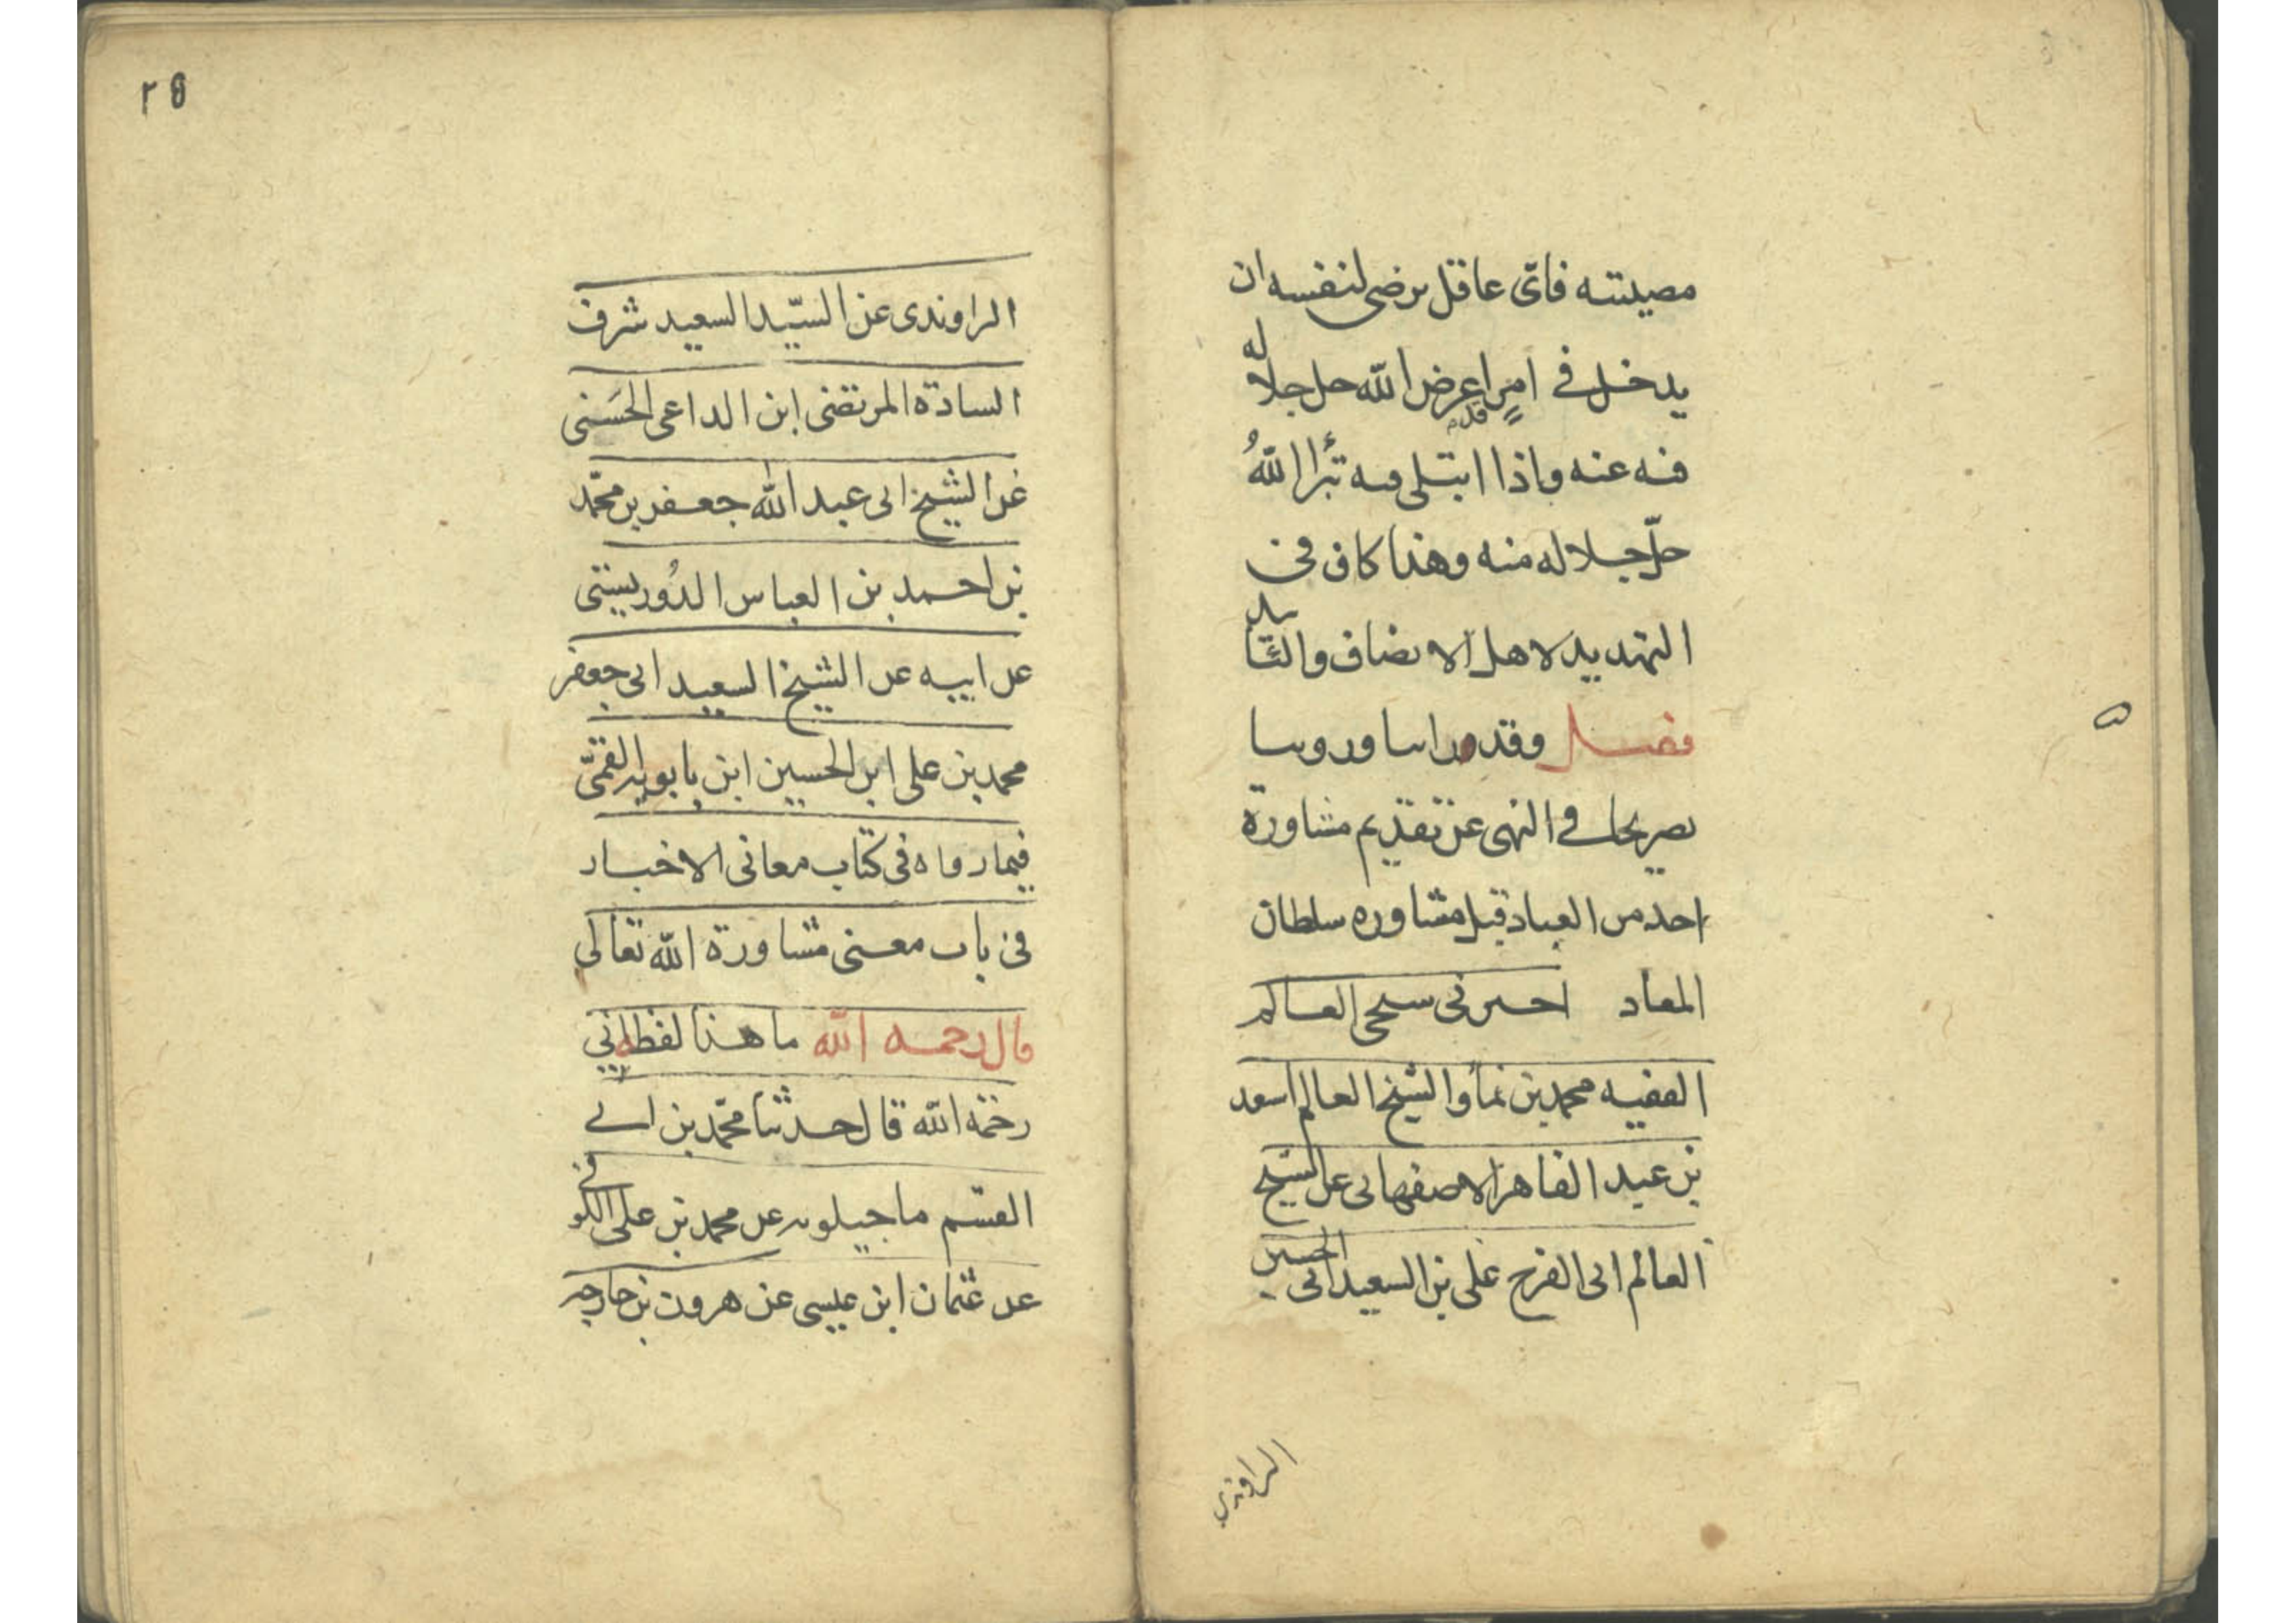 مصيبته فاى عاقل يرضى لنفسه ان
يدخل فى امر قد اعرض الله جل جلاله
فيه عنه واذا ابتلى فيه تبرأ الله
جلّ جلاله منه وهذا كاف فى
التهديد لاهل الانصاف والتأييد
فصل وقد راينا وروينا
تصريحا فى النهى عن تقديم مشاورة
احد من العباد قبل مشاوره سلطان
المعاد اخبرنى شيخى العالم
الفقيه محمد بن نما والشيخ العالم اسعد
بن عبد القاهر الاصفهانى عن الشيخ
العالم ابى الفرج على بن السعيد ابى الحسين
الراوندى
٢٥
الراوندى عن السيّد السعيد شرف
السادة المرتضى ابن الداعى الحَسَنى
عن الشيخ ابى عبد الله جعفر بن محمّد
بن احمد بن العباس الدُوريستى
عن ابيه عن الشيخ السعيد ابى جعفر
محمد بن على ابن الحسين ابن بابويه القمّى
فيما رواه فى كتاب معانى الاخبار
فى باب معنى مشاورة الله تعالى
قال رحمه الله ما هذا لفظه ابى
رحمه الله قال حدثنا محمّد بن ابى
القسم ماجيلويه عن محمد بن على الكوفى
عن عثمان ابن عيسى عن هرون بن خارجه